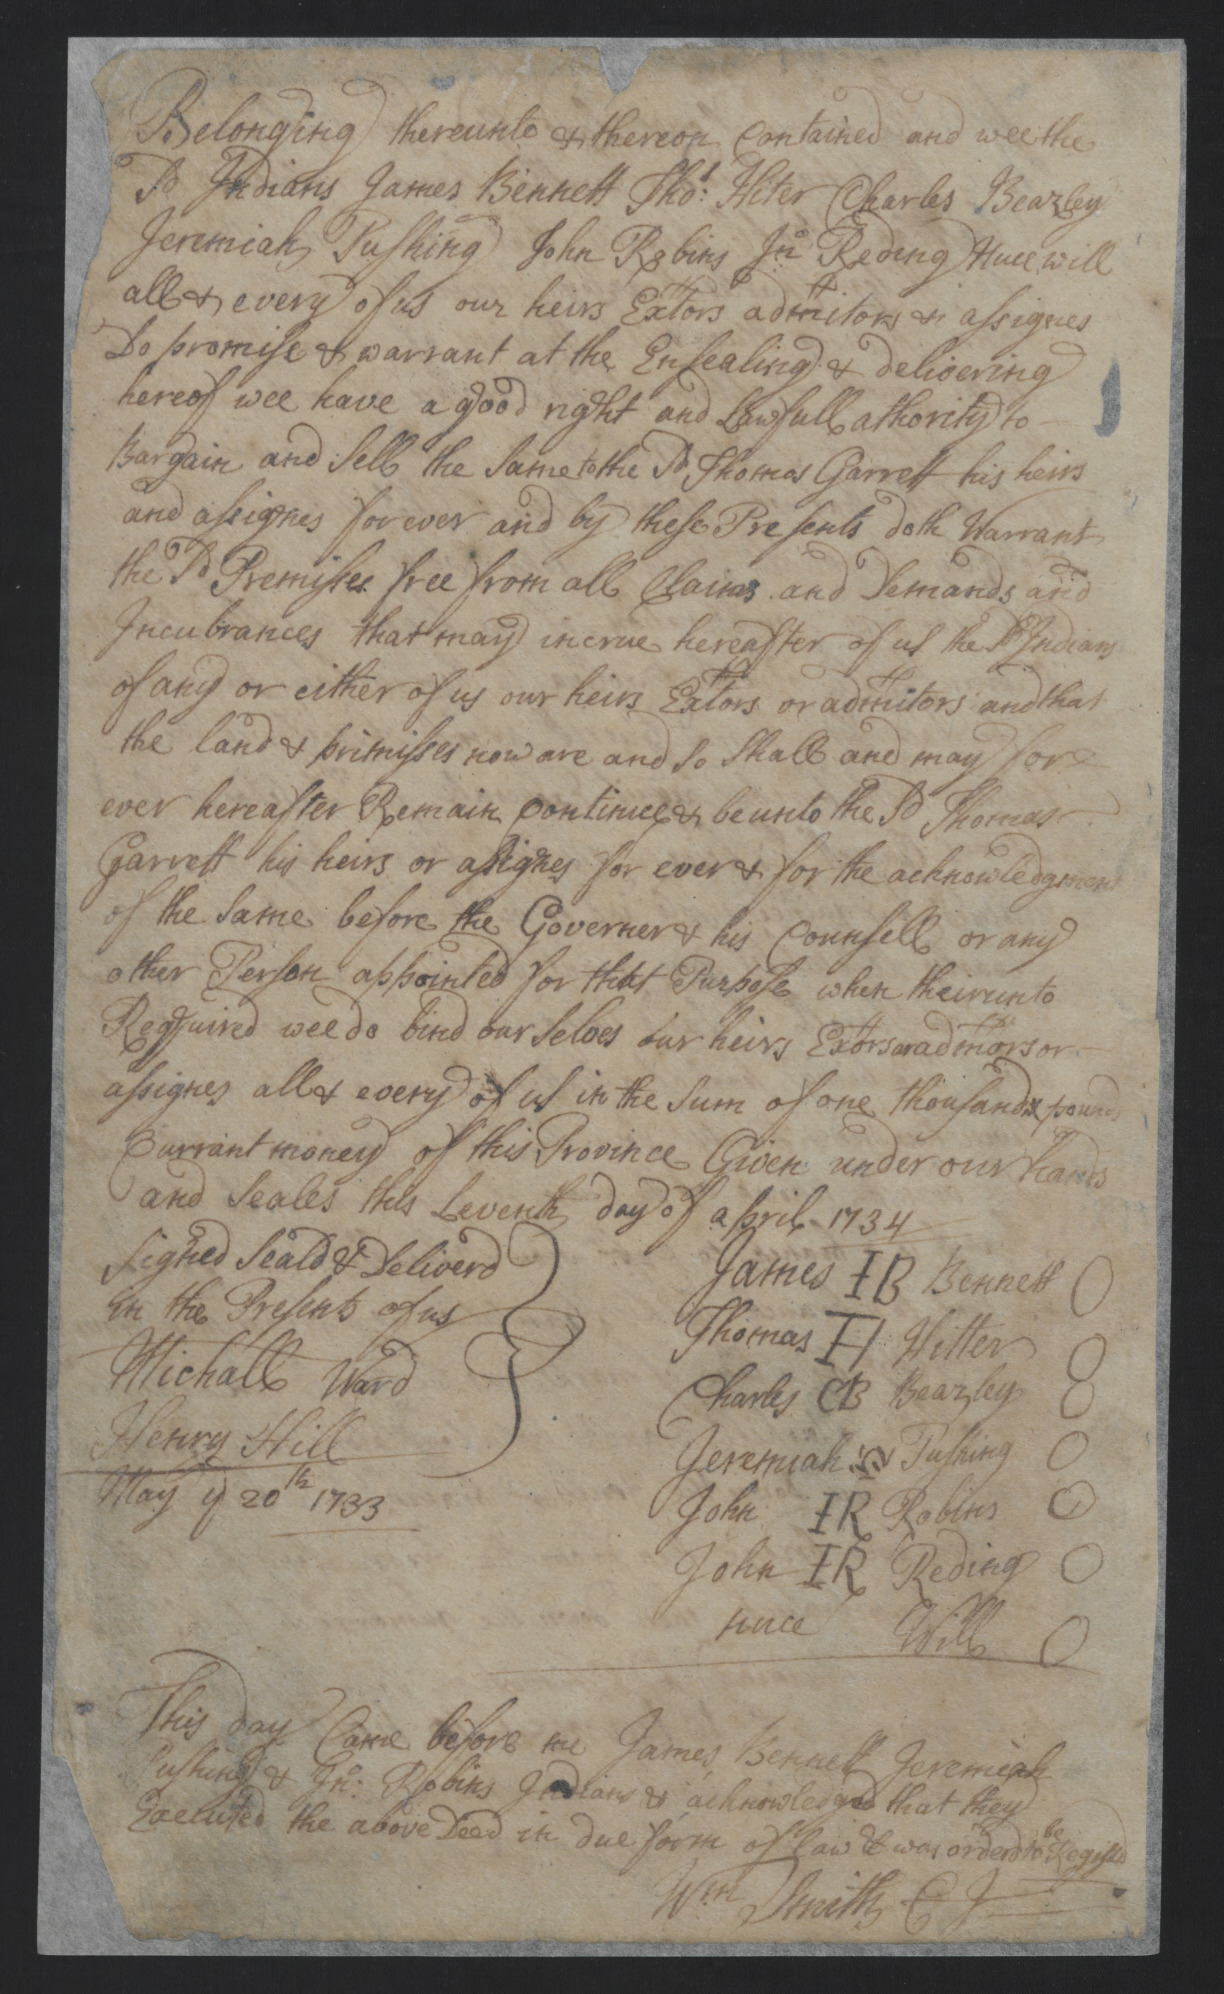 Belonging thereunto & thereon Contained and wee the
Sd Indians James Bennett Thos: Hiter Charles Beazley
Jeremiah Pushing John Robins Jno Reding Nuce will
all & every of us our heirs Extors admitors & assignes
Do promise & warrant at the Ensealing & delivering
hereof wee have a good right and Lawfull athority to
Bargain and Sell the Same to the Sd Thomas Garrett his heirs
and assignes for ever and by these Presents doth Warrant
the Sd Premisses free from all Claims and Demands and
Incubrances that may incrue hereafter of us the Sd Indians
of any or either of us our heirs Extors or admitors and that
the land & primisses now are and so Shall and may for
ever hereafter Remain Continue & be unto the Sd Thomas
Garrett his heirs or assignes for ever & for the acknowledgment
of the Same before the Governer & his Counsell or any
other Person appointed for that Purpose when theirunto
Required wee do bind our Selves our heirs Extors or admors or
assignes all & every of us in the Sum of one thousand pounds
Currant money of this Province Given under our hands
and Seales this Leventh day of april 1734
Signed Seald & Deliverd
in the Presents of us
Michall Ward
Henry Hill
May ye 20th 1733
James IB Bennett
Thomas H Hitter
Charles CB Beazley
Jeremiah Pushing
John IR Robins
John IR Reding
nuce Will
This day Came before me James Bennett Jeremiah
Pushing & Jno: Robins Indians & acknowledged that they
Executed the above Deed in due form of Law & was orderd to be Registed
Wm Smith C J